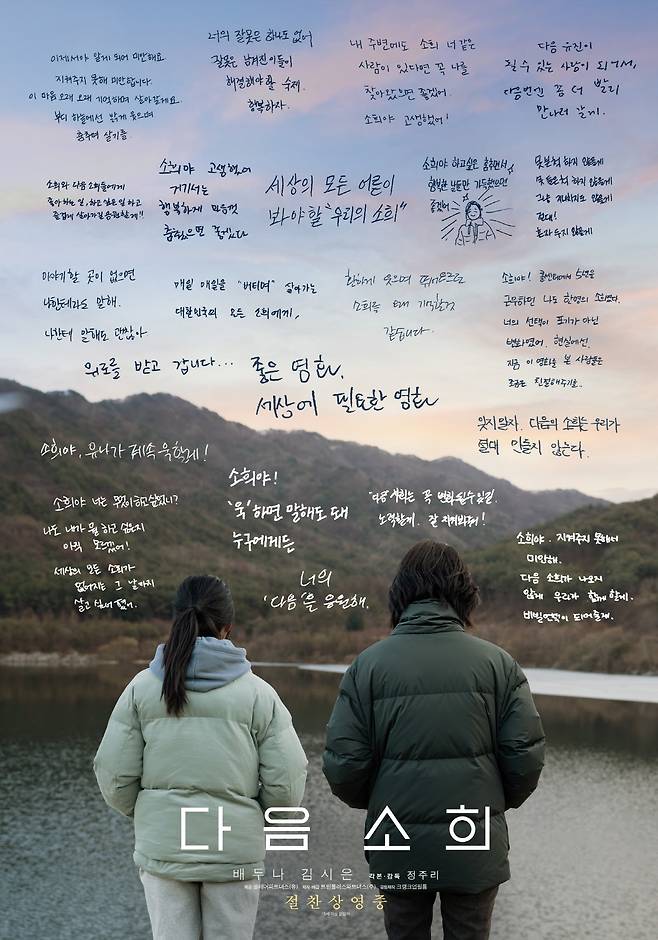 이제서야 알게 되어 미안해요
지켜주지 못해 미안합니다.
이 마음 오래 오래 기억하며 살아갈게요.
부디 하늘에선 밝게 웃으며
춤추며 살기를
너의 잘못은 하나도 없어
잘못은 남겨진 이들이
해결해야 할 숙제.
행복하자.
내 주변에도 소희 너 같은
사람이 있다면 꼭 나를
찾아왔으면 좋겠어.
소희야 고생했어!
다음 유진이
될 수 있는 사람이 되어서,
다음번엔 좀 더 빨리
만나러 갈게.
소희와 다음 소희들에게
좋아하는 일, 하고 싶은 일 하고
즐겁게 살아가길 응원할게!!
소희야 고생했어
거기서는
행복하게 마음껏
춤췄으면 좋겠다
세상의 모든 어른이
봐야할 "우리의 소희"
소희야 하고싶은 춤추면서
행복한 날들만 가득했으면
좋겠어
못본척 하지 않을게
못들은척 하지 않을게
그냥 지나치지 않을게
절대!
혼자 두지 않을게
이야기할 곳이 없으면
나한테라도 말해.
나한테 말해도 괜찮아
매일 매일을 "버티며" 살아가는
대한민국의 모든 소희에게,
환하게 웃으며 뛰어오르던
소희를 오래 기억할것
같습니다.
소희야! 콜센터에서 5년을
근무하던 나도 한명의 소희였다.
너의 선택이 포기가 아닌
변화였어. 현실에선.
지금 이 영화를 본 사람들은
조금은 친절해주기로..
위로를 받고 갑니다... 좋은 영화,
세상에 필요한 영화
잊지말자. 다음의 소희는 우리가
절대 만들지 않는다.
소희야, 유나가 계속 욱할게!
소희야 너는 무엇이 하고싶었니?
나도 내가 뭘 하고 싶은지
아직 모르겠어!
세상의 모든 소희가
없어지는 그 날까지
살고 싶어 졌어.
소희야!
'욱'하면 말해도 돼
누구에게든
너의
'다음'을 응원해.
"다음" 사회는 꼭 변화될 수 있길.
노력할게. 잘 지켜봐줘!
소희야. 지켜주지 못해서
미안해.
다음 소희가 나오지
않게 우리가 함께 할게.
비빌언덕이 되어줄게.
다음 소희
배두나 김시은 각본·감독 정주리
제공 쏠레어파트너스(유) 제작·배급 트윈플러스파트너스(주) 공동제작 크랭크업필름
절찬상영중